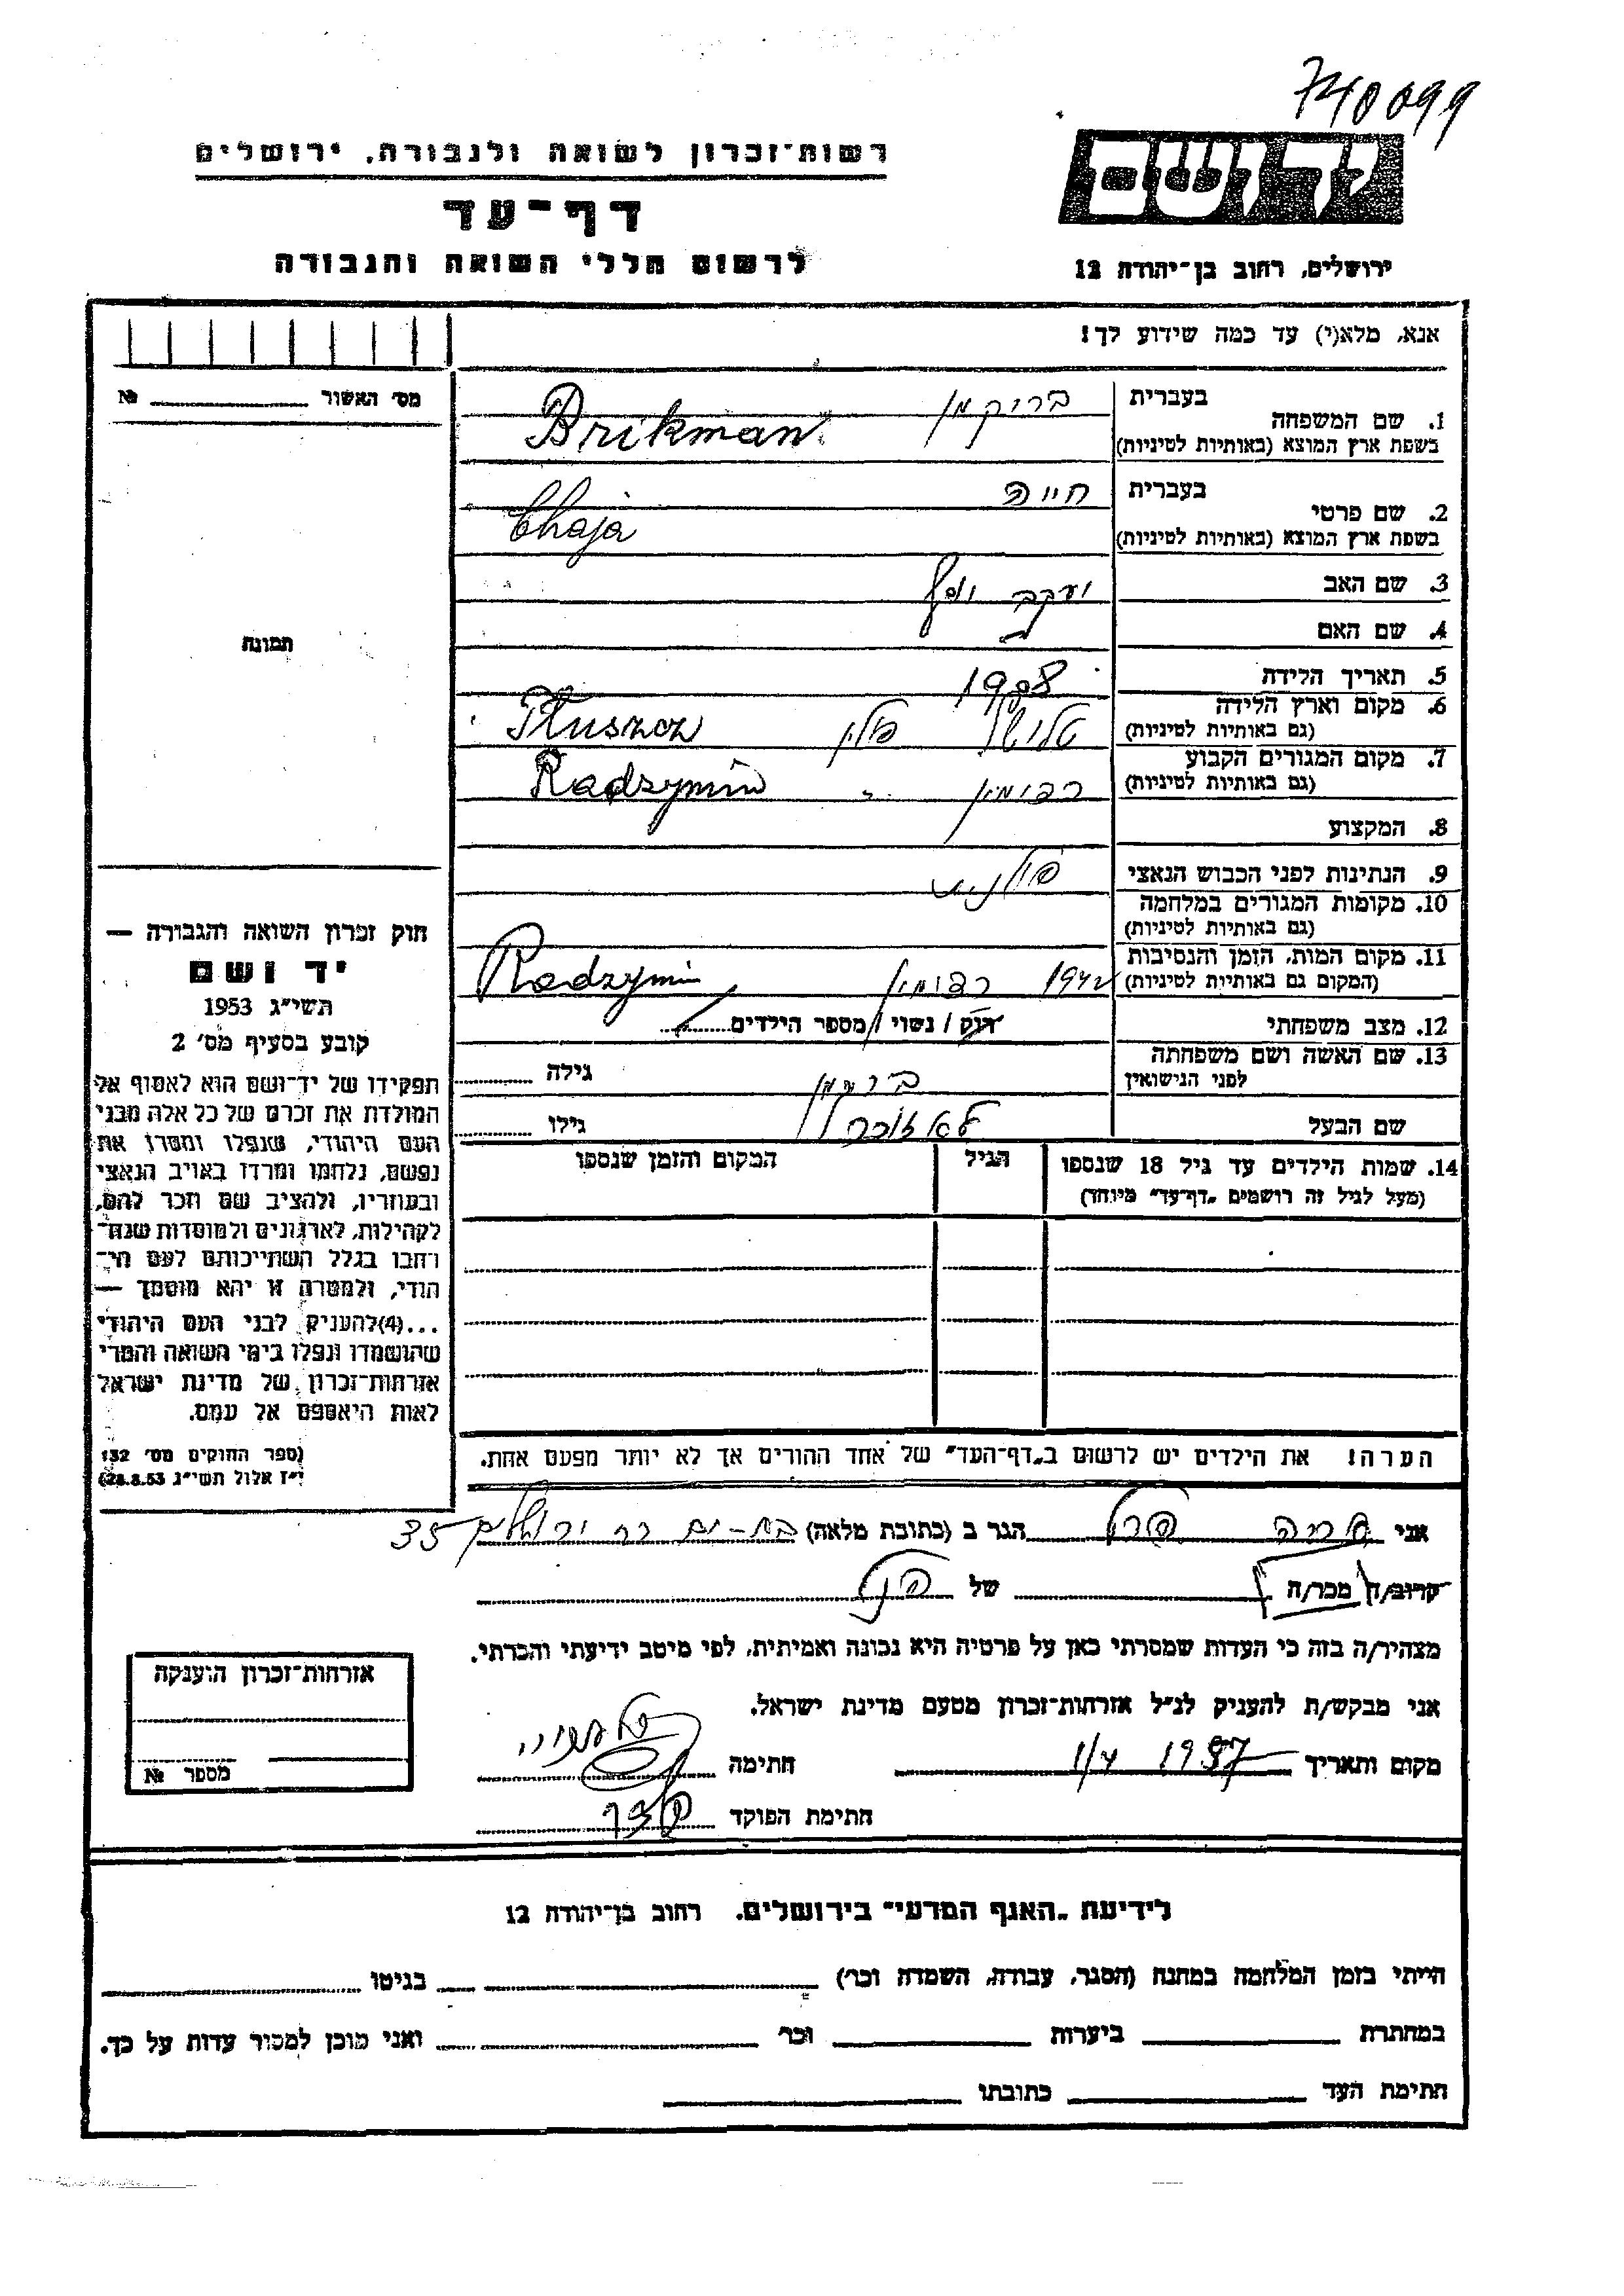 740099
יד ושם
רשות־זכרון לשואה ולגבורה, ירושלים
דף־עד
לרשום חללי השואה והגבורה
ירושלים, רחוב בן־יהודה 12
אנא, מלא(י) עד כמה שידוע לך!
מס׳ האשור № 
תמונה
בעברית בריקמן
1. שם המשפחה
בשפת ארץ המוצא (באותיות לטיניות) Brikman
בעברית חייה
2. שם פרטי
בשפת ארץ המוצא (באותיות לטיניות) Chaja
3. שם האב יעקב יוסף
4. שם האם
5. תאריך הלידה 1908
6. מקום וארץ הלידה פולין
(גם באותיות לטיניות)
7. מקום המגורים הקבוע Radzymin
(גם באותיות לטיניות)
8. המקצוע
9. הנתינות לפני הכבוש הנאצי פולנית
10. מקומות המגורים במלחמה
(גם באותיות לטיניות)
11. מקום המות, הזמן והנסיבות 1942 Radzymin
(המקום גם באותיות לטיניות)
12. מצב משפחתי רווק / נשוי / מספר הילדים
13. שם האשה ושם משפחתה גילה
לפני הנישואין
שם הבעל לא זוכר גילו
14. שמות הילדים עד גיל 18 שנספו הגיל המקום והזמן שנספו
(מעל לגיל זה רושמים „דף־עד״ מיוחד)
הערה! את הילדים יש לרשום ב„דף־העד״ של אחד ההורים אך לא יותר מפעם אחת.
חוק זכרון השואה והגבורה —
יד ושם
תשי״ג 1953
קובע בסעיף מס׳ 2
תפקידו של יד־ושם הוא לאסוף אל
המולדת את זכרם של כל אלה מבני
העם היהודי, שנפלו ומסרו את
נפשם, נלחמו ומרדו באויב הנאצי
ובעוזריו, ולהציב שם וזכר להם,
לקהילות, לארגונים ולמוסדות שנח־
רבו בגלל השתייכותם לעם הי־
הודי, ולמטרה זו יהא מוסמך —
...(4)להעניק לבני העם היהודי
שהושמדו ונפלו בימי השואה והמרי
אזרחות־זכרון של מדינת ישראל
לאות היאספם אל עמם.
(ספר החוקים מס׳ 132
י״ז אלול תשי״ג 28.8.53)
אני הגר ב (כתובת מלאה) בת-ים 35
קרוב/ה מכר/ה של
מצהיר/ה בזה כי העדות שמסרתי כאן על פרטיה היא נכונה ואמיתית, לפי מיטב ידיעתי והכרתי.
אני מבקש/ת להעניק לנ״ל אזרחות־זכרון מטעם מדינת ישראל.
מקום ותאריך 1987 חתימה
חתימת הפוקד
אזרחות־זכרון הוענקה
מספר №
לידיעת „האגף המדעי״ בירושלים, רחוב בן־יהודה 12
הייתי בזמן המלחמה במחנה (הסגר, עבודה, השמדה וכו׳) בגיטו
במחתרת ביערות וכו׳ ואני מוכן למסור עדות על כך.
חתימת העד כתובתו